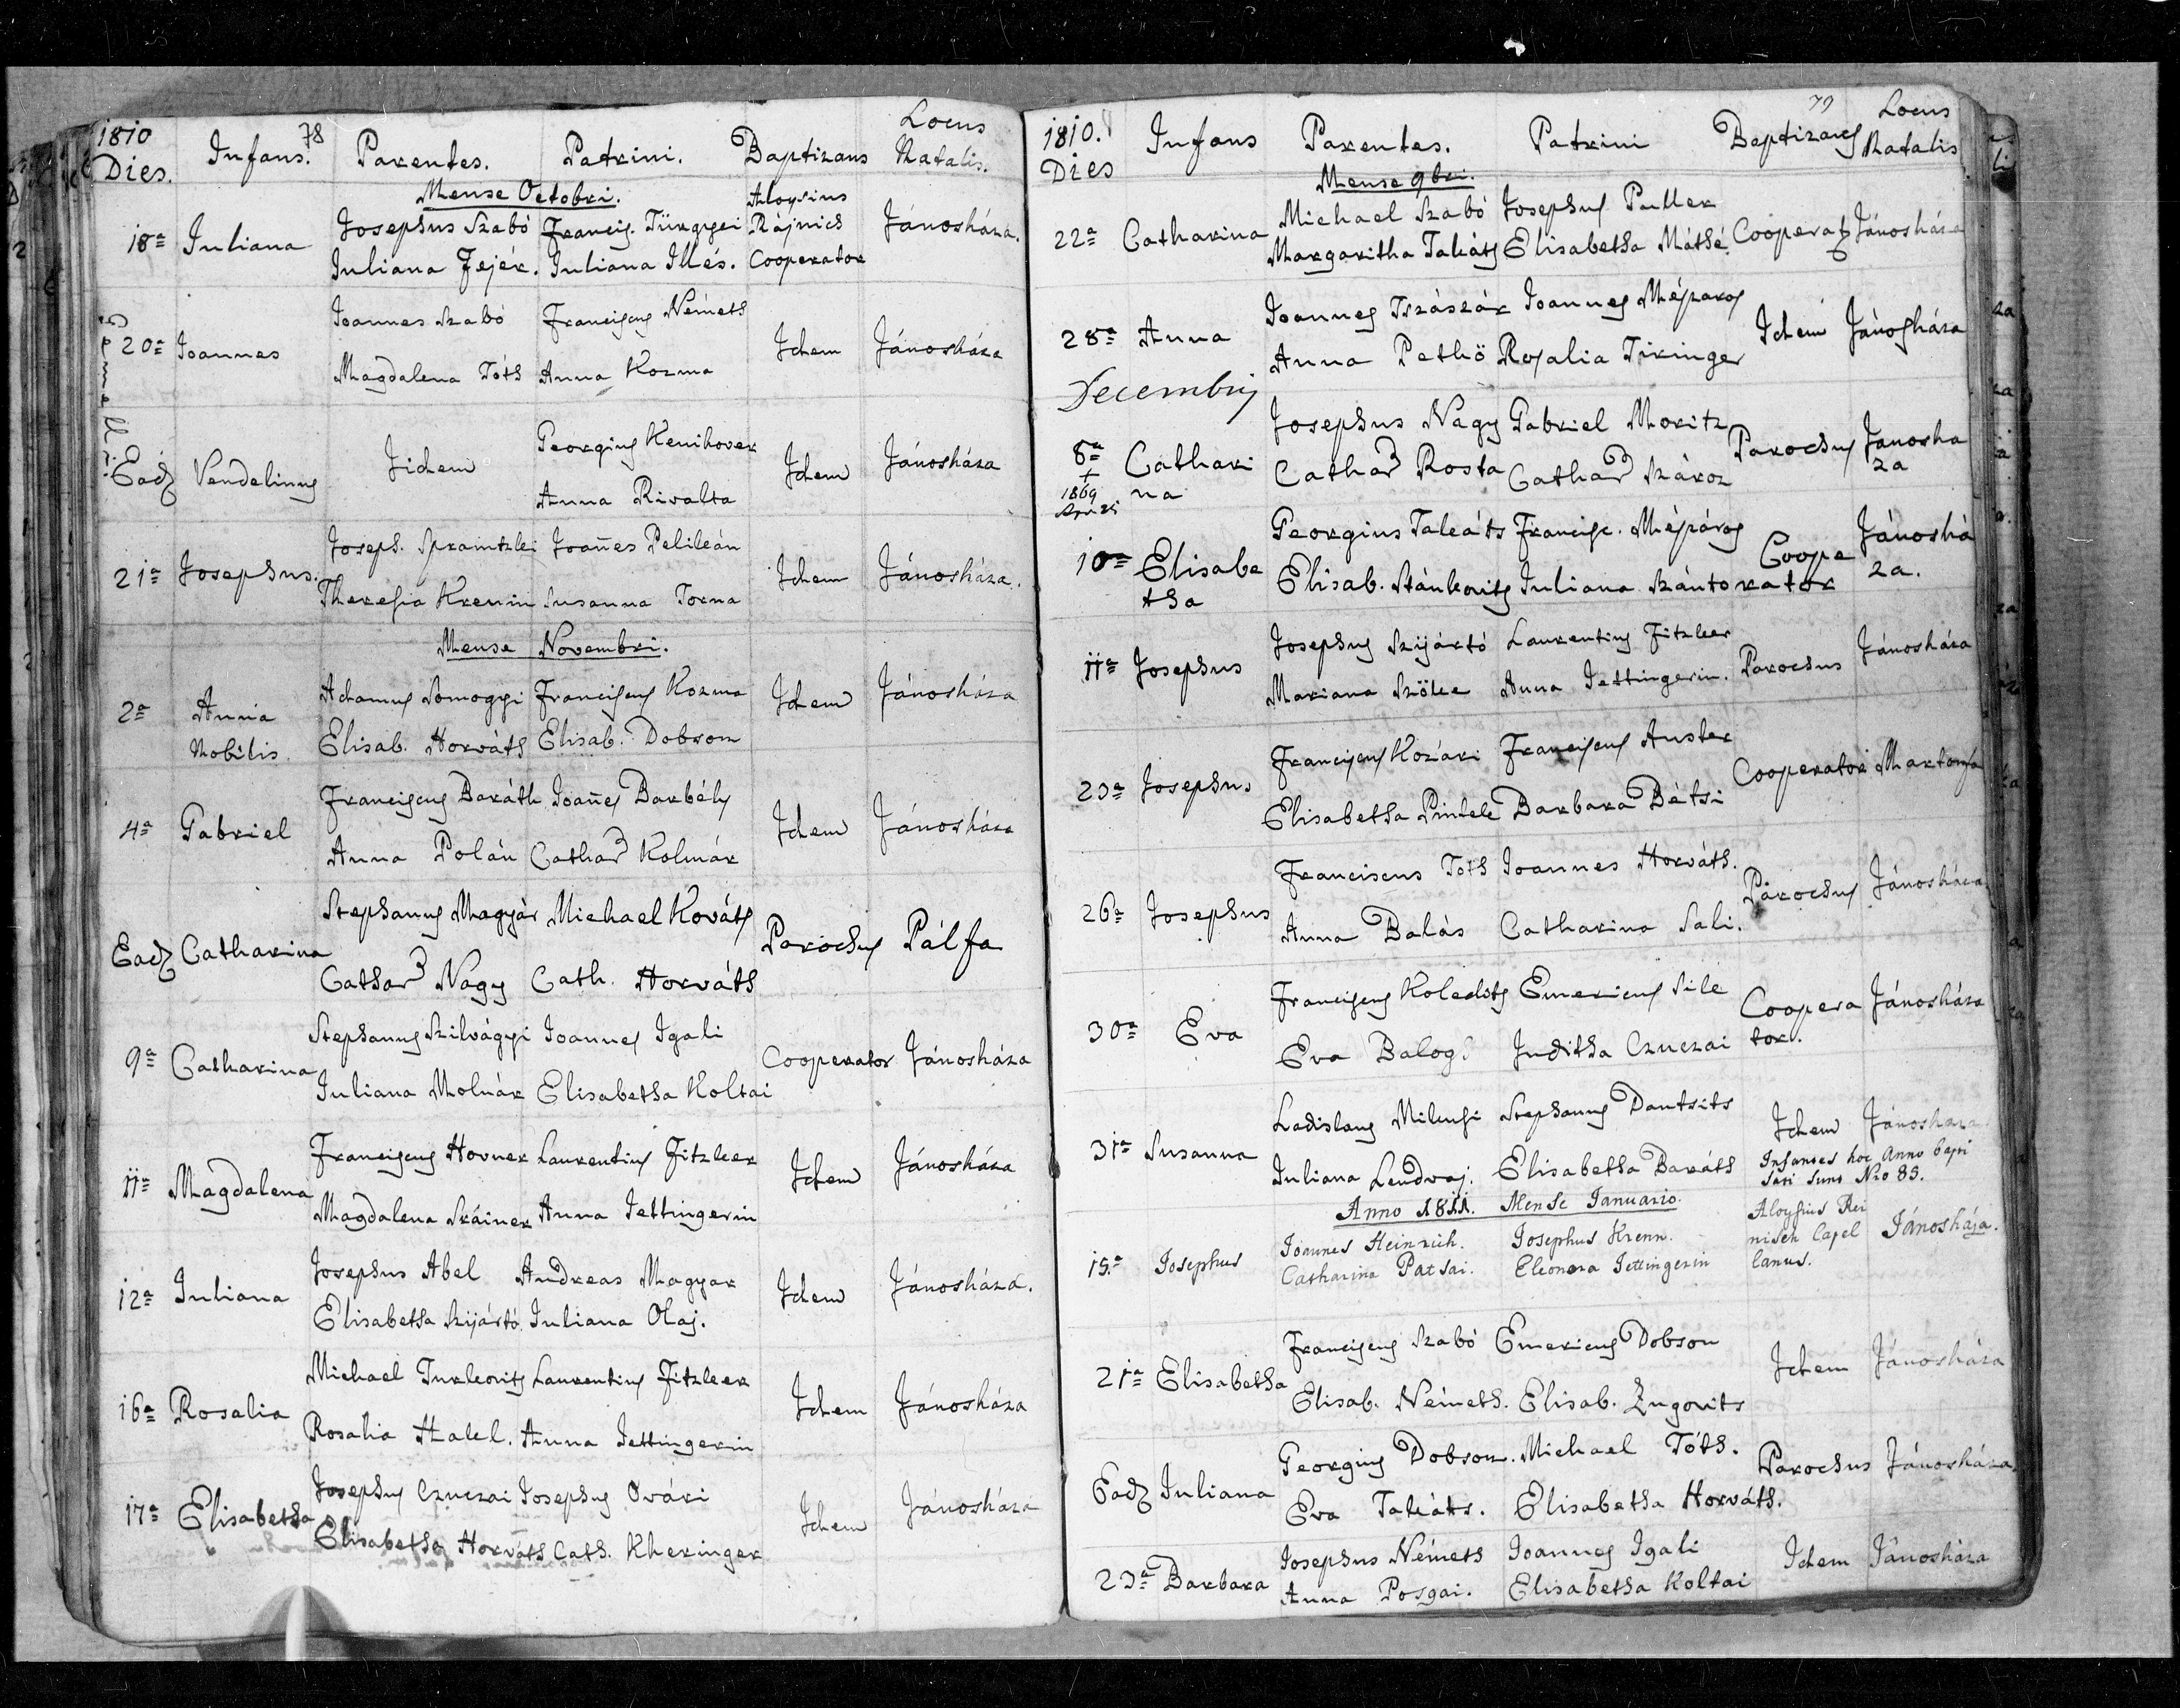 1810 78 Locus
Dies. Infans. Parentes. Patrini. Baptizans Natalis.
Mense Octobri.
18a Juliana Josephus Szabó Francis. Türgyei Aloysius Rájnics Jánosháza.
Juliana Fejér. Juliana Illés. Cooperator
Gemelli
20a Joannes Joannes Szabó Franciscus Németh Idem Jánosháza
Magdalena Tóth Anna Kozma
Ead Vendelinus Iidem Georgius Idem Jánosháza
Anna Rivalta
21a Josephus. Joseph. Joañes Pelikán Idem Jánosháza.
Theresia Susanna Torna
Mense Novembri.
2a Anna Adamus Somogyi Franciscus Kozma Idem Jánosháza
Nobilis Elisab. Horváth Elisab. Dobson
4a Gabriel Franciscus Baráth Joañes Barbély Idem Jánosháza
Anna Polán Cathar Kolmár
Ead Catharina Stephanus Magyár Michael Kováts Parochus Pálfa
Cathar Nagy Cath. Horváth
9a Catharina Stephanus Szilvágyi Joannes Igali Cooperator Jánosháza
Juliana Molnár Elisabetha Koltai
11a Magdalena Franciscus Hovner Laurentius Fitzker Idem Jánosháza
Magdalena Anna Jettingerin
12a Juliana Josephus Abel Andreas Magyar Idem Jánosháza.
Elisabetha Szijártó. Juliana Olaj.
16a Rosalia Michael Turkovits Laurentius Fitzker Idem Jánosháza
Rosalia Anna Jettingerin
17a Elisabetha Josephus Czuczai Josephus Ovári Idem Jánosháza
Elisabetha Horváth Cath. Kheringer
1810. 79 Locus
Dies Infans Parentes. Patrini Baptizans Natalis
Mense 9bri.
22a Catharina Michael Szabó Josephus Puller Cooperat Jánosháza
Margaritha Takáts Elisabetha Máthé
28a Anna Joannes Tszászár Joannes Mészaros Idem Jánosháza
Anna Pethö Rosalia Tiringer
Decembris
8a Cathari Josephus Nagy Gabriel Moritz Parochus Janosha
+ na Cathar Rosta Cathar za
1869
10a Elisabe Georgius Takáts Francisc. Mészáros Coope Jánoshá
tha Elisab. Stánkovits Juliana Szántó rator za.
11a Josephus Josephus Szijártó Laurentius Fitzker Parochus Jánosháza
Mariana Szöke Anna Jettingerin.
23a Josephus Franciscus Kozári Franciscus Auster Cooperator Martonfa
Elisabetha Pintele Barbara Bétsi
26a Josephus Franciscus Toth Joannes Horváth. Parochus Jánosháza
Anna Balás Catharina Sali.
30a Eva Franciscus Emericus Sile Coopera Jánosháza
Eva Balogh Juditha Czuczai tor.
31a Susanna Ladislaus Stephanus Dantsits Idem Jánosháza
Juliana Lendvaj. Elisabetha Baráth Infantes hoc Anno bapti
sati sunt Nro 85.
Anno 1811. Mense Januario.
15.a Josephus Joannes Heinrich. Josephus Krenn. Aloysius Rei
nisch Capel Jánosháza.
Catharina Patsai. Eleonora Jettingerin lanus.
21a Elisabetha Franciscus Szabó Emericus Dobson Idem Jánosháza
Elisab. Németh. Elisab. Zugovits
Ead Juliana Georgius Dobson. Michael Tóth. Parochus Jánosháza.
Eva Takáts. Elisabetha Horváth.
23a Barbara Josephus Németh Joannes Igali Idem Jánosháza
Anna Posgai. Elisabetha Koltai